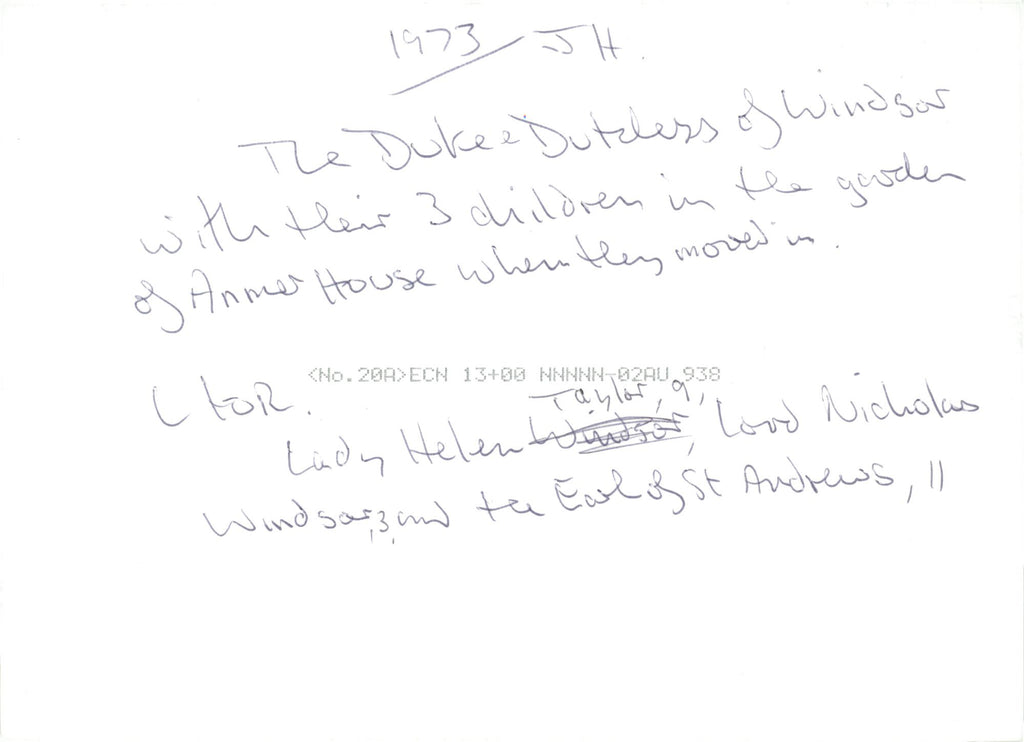 1973 JH.
The Duke & Dutchess of Windsor
with their 3 children in the garden
of Anmer House when they moved in.
<No.20A>ECN 13+00 NNNNN-02AU 938
L to R.
Taylor, 9,
Lady Helen Windsor, Lord Nicholas
Windsor, 3, and the Earl of St Andrews, 11